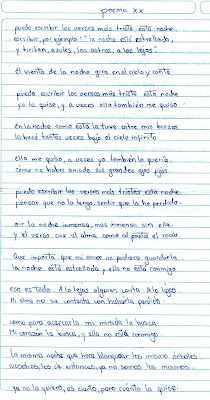 poema xx
puedo escribir los versos más triste esta noche.
escribir, por ejemplo: "la noche está estrellada,
y tiritan, azules, los astros, a lo lejos".
El viento de la noche gira en el cielo y canta
puedo escribir los versos más triste esta noche
yo la quise, y a veces ella también me quiso.
En la noche como esta la tuve entre mis brazos
la besé tantas veces bajo el cielo infinito
ella me quiso, a veces yo también la quería.
como no haber amado sus grandes ojos fijos.
puedo escribir los versos más tristes esta noche.
pensar que no la tengo. sentir que la he perdido.
oir la noche inmensa, mas inmensa sin ella.
y el verso cae al alma como al pasto el rocío.
Que importa que mi amor no pudiera guardarla.
la noche está estrellada, y ella no está conmigo
eso es todo. A lo lejos alguien canta. A lo lejos.
Mi alma no se contenta con haberla perdido.
como para acercarla mi mirada la busca.
Mi corazón la busca, y ella no está conmigo
la misma noche que hace blanquear los mismo árboles.
nosotros, los de entonces, ya no somos los mismos.
ya no la quiero, es cierto, pero cuánto la quise.